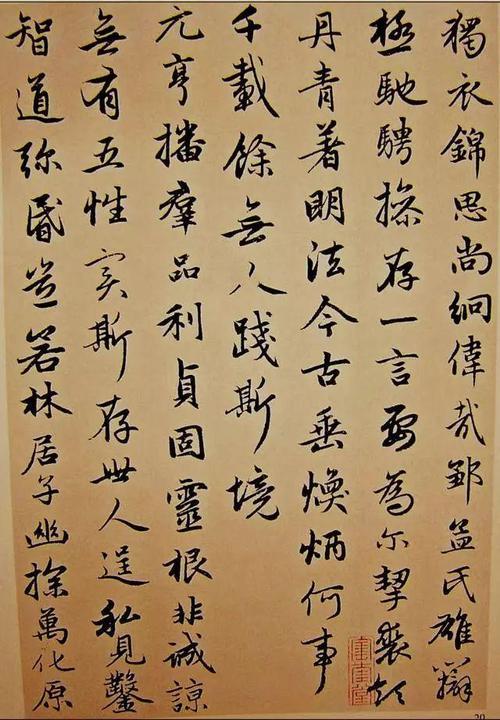 獨衣錦思尚絅偉哉鄒孟氏雄辯
極馳騁操存一言要為尓挈裘領
丹青著明法今古垂煥炳何事
千載餘無人踐斯境
元亨播羣品利貞固靈根非誠諒
無有五性實斯存世人逞私見鑿
智道弥昏豈若林居子幽探萬化原